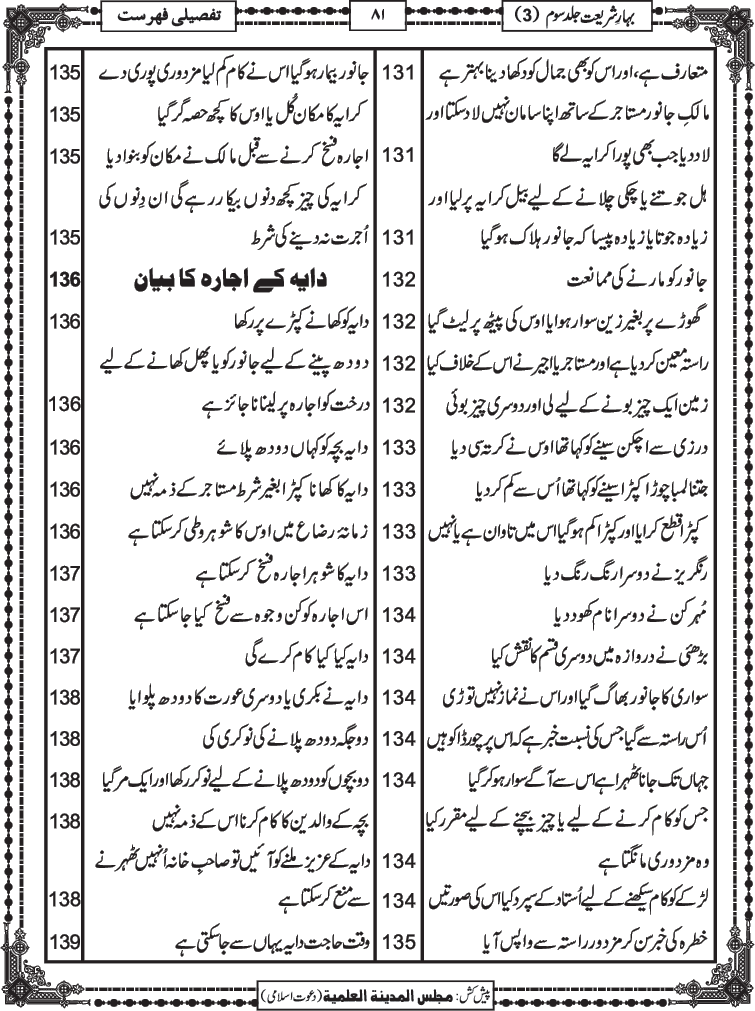 بہارِ شریعت جلد سوم (3)
۸۱
تفصیلی فہرست
متعارف ہے، اور اس کو بھی جمال کو دکھا دینا بہتر ہے 131
مالکِ جانور مستاجر کے ساتھ اپنا سامان نہیں لاد سکتا اور
لاد دیا جب بھی پورا کرایہ لے گا 131
ہل جوتنے یا چکی چلانے کے لیے بیل کرایہ پر لیا اور
زیادہ جوتا یا زیادہ پیسا کہ جانور ہلاک ہوگیا 131
جانور کو مارنے کی ممانعت 132
گھوڑے پر بغیر زین سوار ہوا یا اوس کی پیٹھ پر لیٹ گیا 132
راستہ معین کردیا ہے اور مستاجر یا اجیر نے اس کے خلاف کیا 132
زمین ایک چیز بونے کے لیے لی اور دوسری چیز بوئی 132
درزی سے اچکن سینے کو کہا تھا اوس نے کرتہ سی دیا 133
جتنا لمبا چوڑا کپڑا سینے کو کہا تھا اُس سے کم کردیا 133
کپڑا قطع کرایا اور کپڑا کم ہوگیا اس میں تاوان ہے یا نہیں 133
رنگریز نے دوسرا رنگ رنگ دیا 133
مُہر کن نے دوسرا نام کھود دیا 134
بڑھئی نے دروازہ میں دوسری قسم کا نقش کیا 134
سواری کا جانور بھاگ گیا اور اس نے نماز نہیں توڑی 134
اُس راستہ سے گیا جس کی نسبت خبر ہے کہ اس پر چور ڈاکو ہیں 134
جہاں تک جانا ٹھہرا ہے اس سے آگے سوار ہو کر گیا 134
جس کو کام کرنے کے لیے یا چیز بیچنے کے لیے مقرر کیا
وہ مزدوری مانگتا ہے 134
لڑکے کو کام سیکھنے کے لیے اُستاد کے سپرد کیا اس کی صورتیں 134
خطرہ کی خبر سن کر مزدور راستہ سے واپس آیا 135
جانور بیمار ہوگیا اس نے کام کم لیا مزدوری پوری دے 135
کرایہ کا مکان کُل یا اوس کا کچھ حصہ گر گیا 135
اجارہ فسخ کرنے سے قبل مالک نے مکان کو بنوا دیا 135
کرایہ کی چیز کچھ دنوں بیکار رہے گی ان دِنوں کی
اُجرت نہ دینے کی شرط 135
دایہ کے اجارہ کا بیان 136
دایہ کو کھانے کپڑے پر رکھا 136
دودھ پینے کے لیے جانور کو یا پھل کھانے کے لیے
درخت کو اجارہ پر لینا ناجائز ہے 136
دایہ بچہ کو کہاں دودھ پلائے 136
دایہ کا کھانا کپڑا بغیر شرط مستاجر کے ذمہ نہیں 136
زمانۂ رضاع میں اوس کا شوہر وطی کرسکتا ہے 136
دایہ کا شوہر اجارہ فسخ کرسکتا ہے 137
اس اجارہ کو کن وجوہ سے فسخ کیا جاسکتا ہے 137
دایہ کیا کیا کام کرے گی 137
دایہ نے بکری یا دوسری عورت کا دودھ پلوایا 138
دو جگہ دودھ پلانے کی نوکری کی 138
دو بچوں کو دودھ پلانے کے لیے نوکر رکھا اور ایک مر گیا 138
بچہ کے والدین کا کام کرنا اس کے ذمہ نہیں 138
دایہ کے عزیز ملنے کو آئیں تو صاحبِ خانہ اُنہیں ٹھہرنے
سے منع کرسکتا ہے 138
وقتِ حاجت دایہ یہاں سے جاسکتی ہے 139
پیش کش: مجلس المدینۃ العلمیۃ (دعوتِ اسلامی)